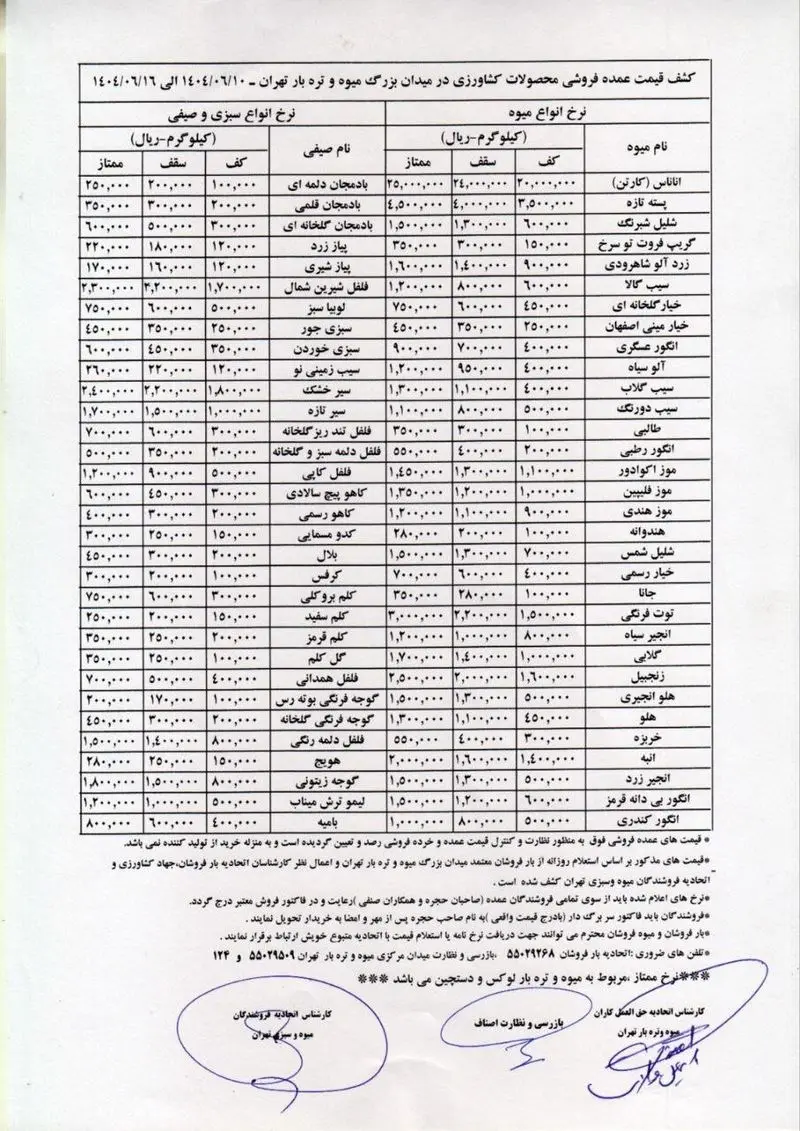 کشف قیمت عمده فروشی محصولات کشاورزی در میدان بزرگ میوه و تره بار تهران ـ ۱٤۰٤/۰٦/۱۰ الی ۱٤۰٤/۰٦/۱٦
نرخ انواع میوه نرخ انواع سبزی و صیفی
نام میوه (کیلوگرم-ریال) نام صیفی (کیلوگرم-ریال)
کف سقف ممتاز کف سقف ممتاز
اناناس (کارتن) ۲۰,۰۰۰,۰۰۰ ۲٤,۰۰۰,۰۰۰ ۲٥,۰۰۰,۰۰۰ بادمجان دلمه ای ۱۰۰,۰۰۰ ۲۰۰,۰۰۰ ۲٥۰,۰۰۰
پسته تازه ۳,٥۰۰,۰۰۰ ٤,۰۰۰,۰۰۰ ٤,٥۰۰,۰۰۰ بادمجان قلمی ۲۰۰,۰۰۰ ۳۰۰,۰۰۰ ۳٥۰,۰۰۰
شلیل شبرنگ ٦۰۰,۰۰۰ ۱,۳۰۰,۰۰۰ ۱,٥۰۰,۰۰۰ بادمجان گلخانه ای ۳۰۰,۰۰۰ ٥۰۰,۰۰۰ ٦۰۰,۰۰۰
گریپ فروت تو سرخ ۱٥۰,۰۰۰ ۳۰۰,۰۰۰ ۳٥۰,۰۰۰ پیاز زرد ۱۲۰,۰۰۰ ۱۸۰,۰۰۰ ۲۲۰,۰۰۰
زرد آلو شاهرودی ۹۰۰,۰۰۰ ۱,٤۰۰,۰۰۰ ۱,٦۰۰,۰۰۰ پیاز شیری ۱۲۰,۰۰۰ ۱٦۰,۰۰۰ ۱۷۰,۰۰۰
سیب گالا ٦۰۰,۰۰۰ ۸۰۰,۰۰۰ ۱,۲۰۰,۰۰۰ فلفل شیرین شمال ۱,۷۰۰,۰۰۰ ۲,۲۰۰,۰۰۰ ۲,۳۰۰,۰۰۰
خیارگلخانه ای ٤٥۰,۰۰۰ ٦۰۰,۰۰۰ ۷٥۰,۰۰۰ لوبیا سبز ٥۰۰,۰۰۰ ٦۰۰,۰۰۰ ۷٥۰,۰۰۰
خیار مینی اصفهان ۲٥۰,۰۰۰ ۳٥۰,۰۰۰ ٤٥۰,۰۰۰ سبزی جور ۲٥۰,۰۰۰ ۳٥۰,۰۰۰ ٤٥۰,۰۰۰
انگور عسگری ٤۰۰,۰۰۰ ۷۰۰,۰۰۰ ۹۰۰,۰۰۰ سبزی خوردن ۳٥۰,۰۰۰ ٤٥۰,۰۰۰ ٦۰۰,۰۰۰
آلو سیاه ٤۰۰,۰۰۰ ۹٥۰,۰۰۰ ۱,۲۰۰,۰۰۰ سیب زمینی نو ۱۲۰,۰۰۰ ۲۲۰,۰۰۰ ۲٦۰,۰۰۰
سیب گلاب ٤۰۰,۰۰۰ ۱,۱۰۰,۰۰۰ ۱,۳۰۰,۰۰۰ سیر خشک ۱,۸۰۰,۰۰۰ ۲,۲۰۰,۰۰۰ ۲,٤۰۰,۰۰۰
سیب دورنگ ٥۰۰,۰۰۰ ۸۰۰,۰۰۰ ۱,۱۰۰,۰۰۰ سیر تازه ۱,۰۰۰,۰۰۰ ۱,٥۰۰,۰۰۰ ۱,۷۰۰,۰۰۰
طالبی ۱۰۰,۰۰۰ ۳۰۰,۰۰۰ ۳٥۰,۰۰۰ فلفل تند ریزگلخانه ۳۰۰,۰۰۰ ٦۰۰,۰۰۰ ۷۰۰,۰۰۰
انگور رطبی ۲۰۰,۰۰۰ ٤۰۰,۰۰۰ ٥٥۰,۰۰۰ فلفل دلمه سبز و گلخانه ۲۰۰,۰۰۰ ۳٥۰,۰۰۰ ٥۰۰,۰۰۰
موز اکوادور ۱,۱۰۰,۰۰۰ ۱,۳۰۰,۰۰۰ ۱,٤٥۰,۰۰۰ فلفل کاپی ٥۰۰,۰۰۰ ۹۰۰,۰۰۰ ۱,۲۰۰,۰۰۰
موز فلیپین ۱,۰۰۰,۰۰۰ ۱,۲۰۰,۰۰۰ ۱,۳٥۰,۰۰۰ کاهو پیچ سالادی ۳۰۰,۰۰۰ ٤٥۰,۰۰۰ ٦۰۰,۰۰۰
موز هندی ۹۰۰,۰۰۰ ۱,۱۰۰,۰۰۰ ۱,۲۰۰,۰۰۰ کاهو رسمی ۲۰۰,۰۰۰ ۳۰۰,۰۰۰ ٤۰۰,۰۰۰
هندوانه ۱۰۰,۰۰۰ ۲۰۰,۰۰۰ ۲۸۰,۰۰۰ کدو مسمایی ۱٥۰,۰۰۰ ۲٥۰,۰۰۰ ۳۰۰,۰۰۰
شلیل شمس ۷۰۰,۰۰۰ ۱,۳۰۰,۰۰۰ ۱,٥۰۰,۰۰۰ بلال ۲۰۰,۰۰۰ ۳۰۰,۰۰۰ ٤٥۰,۰۰۰
خیار رسمی ٤۰۰,۰۰۰ ٦۰۰,۰۰۰ ۷۰۰,۰۰۰ کرفس ۱۰۰,۰۰۰ ۲۰۰,۰۰۰ ۳۰۰,۰۰۰
جانا ۱۰۰,۰۰۰ ۲۸۰,۰۰۰ ۳٥۰,۰۰۰ کلم بروکلی ۳۰۰,۰۰۰ ٦۰۰,۰۰۰ ۷٥۰,۰۰۰
توت فرنگی ۱,٥۰۰,۰۰۰ ۲,۲۰۰,۰۰۰ ۳,۰۰۰,۰۰۰ کلم سفید ۱٥۰,۰۰۰ ۲۰۰,۰۰۰ ۲٥۰,۰۰۰
انجیر سیاه ۸۰۰,۰۰۰ ۱,۰۰۰,۰۰۰ ۱,۲۰۰,۰۰۰ کلم قرمز ۲۰۰,۰۰۰ ۲٥۰,۰۰۰ ۳٥۰,۰۰۰
گلابی ۱,۰۰۰,۰۰۰ ۱,٤۰۰,۰۰۰ ۱,۷۰۰,۰۰۰ گل کلم ۱۰۰,۰۰۰ ۲٥۰,۰۰۰ ۳٥۰,۰۰۰
زنجبیل ۱,٦۰۰,۰۰۰ ۲,۰۰۰,۰۰۰ ۲,٥۰۰,۰۰۰ فلفل همدانی ٤۰۰,۰۰۰ ٥۰۰,۰۰۰ ۷۰۰,۰۰۰
هلو انجیری ٥۰۰,۰۰۰ ۱,۳۰۰,۰۰۰ ۱,٥۰۰,۰۰۰ گوجه فرنگی بوته رس ۱۰۰,۰۰۰ ۱۷۰,۰۰۰ ۲۰۰,۰۰۰
هلو ٤٥۰,۰۰۰ ۱,۱۰۰,۰۰۰ ۱,۳۰۰,۰۰۰ گوجه فرنگی گلخانه ۲۰۰,۰۰۰ ۳۰۰,۰۰۰ ٤٥۰,۰۰۰
خربزه ۳۰۰,۰۰۰ ٤۰۰,۰۰۰ ٥٥۰,۰۰۰ فلفل دلمه رنگی ۸۰۰,۰۰۰ ۱,٤۰۰,۰۰۰ ۱,٥۰۰,۰۰۰
انبه ۱,٤۰۰,۰۰۰ ۱,٦۰۰,۰۰۰ ۲,۰۰۰,۰۰۰ هویج ۱٥۰,۰۰۰ ۲٥۰,۰۰۰ ۲۸۰,۰۰۰
انجیر زرد ٥۰۰,۰۰۰ ۱,۳۰۰,۰۰۰ ۱,٥۰۰,۰۰۰ گوجه زیتونی ۸۰۰,۰۰۰ ۱,٥۰۰,۰۰۰ ۱,۸۰۰,۰۰۰
انگور بی دانه قرمز ٦۰۰,۰۰۰ ۱,۲۰۰,۰۰۰ ۱,٥۰۰,۰۰۰ لیمو ترش میناب ٥۰۰,۰۰۰ ۱,۰۰۰,۰۰۰ ۱,۲۰۰,۰۰۰
انگور کندری ٥۰۰,۰۰۰ ۸۰۰,۰۰۰ ۱,۰۰۰,۰۰۰ بامیه ٤۰۰,۰۰۰ ٦۰۰,۰۰۰ ۸۰۰,۰۰۰
* قیمت های عمده فروشی فوق به منظور نظارت و کنترل قیمت عمده و خرده فروشی رصد و تعیین گردیده است و به منزله خرید از تولید کننده نمی باشد.
*قیمت های مذکور بر اساس استعلام روزانه از بار فروشان معتمد میدان بزرگ میوه و تره بار تهران و اعمال نظر کارشناسان اتحادیه بار فروشان،جهاد کشاورزی و
اتحادیه فروشندگان میوه وسبزی تهران کشف شده است .
*نرخ های اعلام شده باید از سوی تمامی فروشندگان عمده (صاحبان حجره و همکاران صنفی )رعایت و در فاکتور فروش معتبر درج گردد.
*فروشندگان باید فاکتور سر برگ دار (بادرج قیمت واقعی )به نام صاحب حجره پس از مهر و امضا به خریدار تحویل نمایند .
*بار فروشان و میوه فروشان محترم می توانند جهت دریافت نرخ نامه یا استعلام قیمت با اتحادیه متبوع خویش ارتباط برقرار نمایند .
*تلفن های ضروری :اتحادیه بار فروشان ٥٥۰۲۹۲٦۸ ،بازرسی و نظارت میدان مرکزی میوه و تره بار تهران ٥٥۰۲۹٥۰۹ و ۱۲٤
***نرخ ممتاز ،مربوط به میوه و تره بار لوکس و دستچین می باشد ***
کارشناس اتحادیه حق العمل کاران
میوه وتره بار تهران
بازرسی و نظارت اصناف
کارشناس اتحادیه فروشندگان
میوه و سبزی تهران